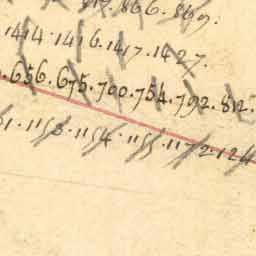 866. 869.
1414. 1416. 1417. 1427.
656. 675. 700. 754. 792. 812.
1153. 1154. 1155. 1172. 124